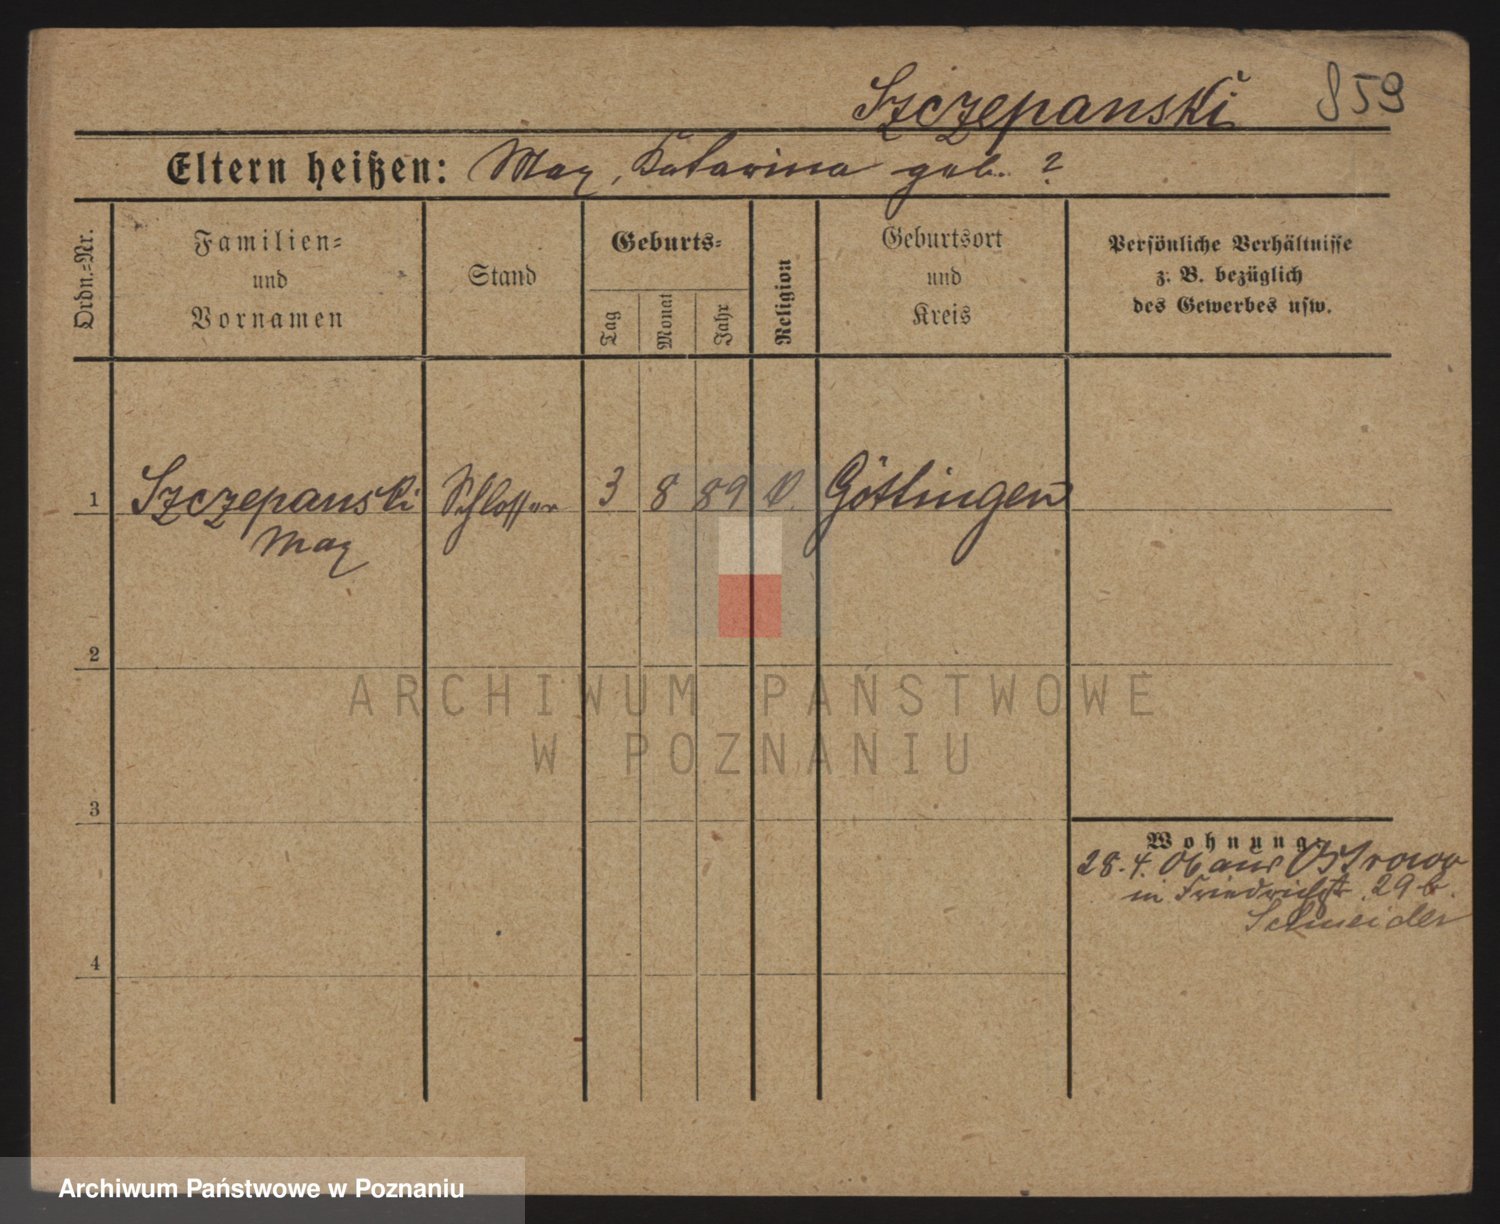 Szczepanski 859
Eltern heißen: Max, Katarina geb. ?
Ordn.=Nr.
Familien=
und
Vornamen
Stand
Geburts=
Tag
Monat
Jahr
Religion
Geburtsort
und
Kreis
Persönliche Verhältnisse
z. B. bezüglich
des Gewerbes usw.
1 Szczepanski Schlosser 3 8 89 Göttingen
Max
2
3
4
Wohnung:
28.4.06 aus Ostrowo
in Friedrichst. 29 b.
Schneider
ARCHIWUM PAŃSTWOWE
W POZNANIU
Archiwum Państwowe w Poznaniu